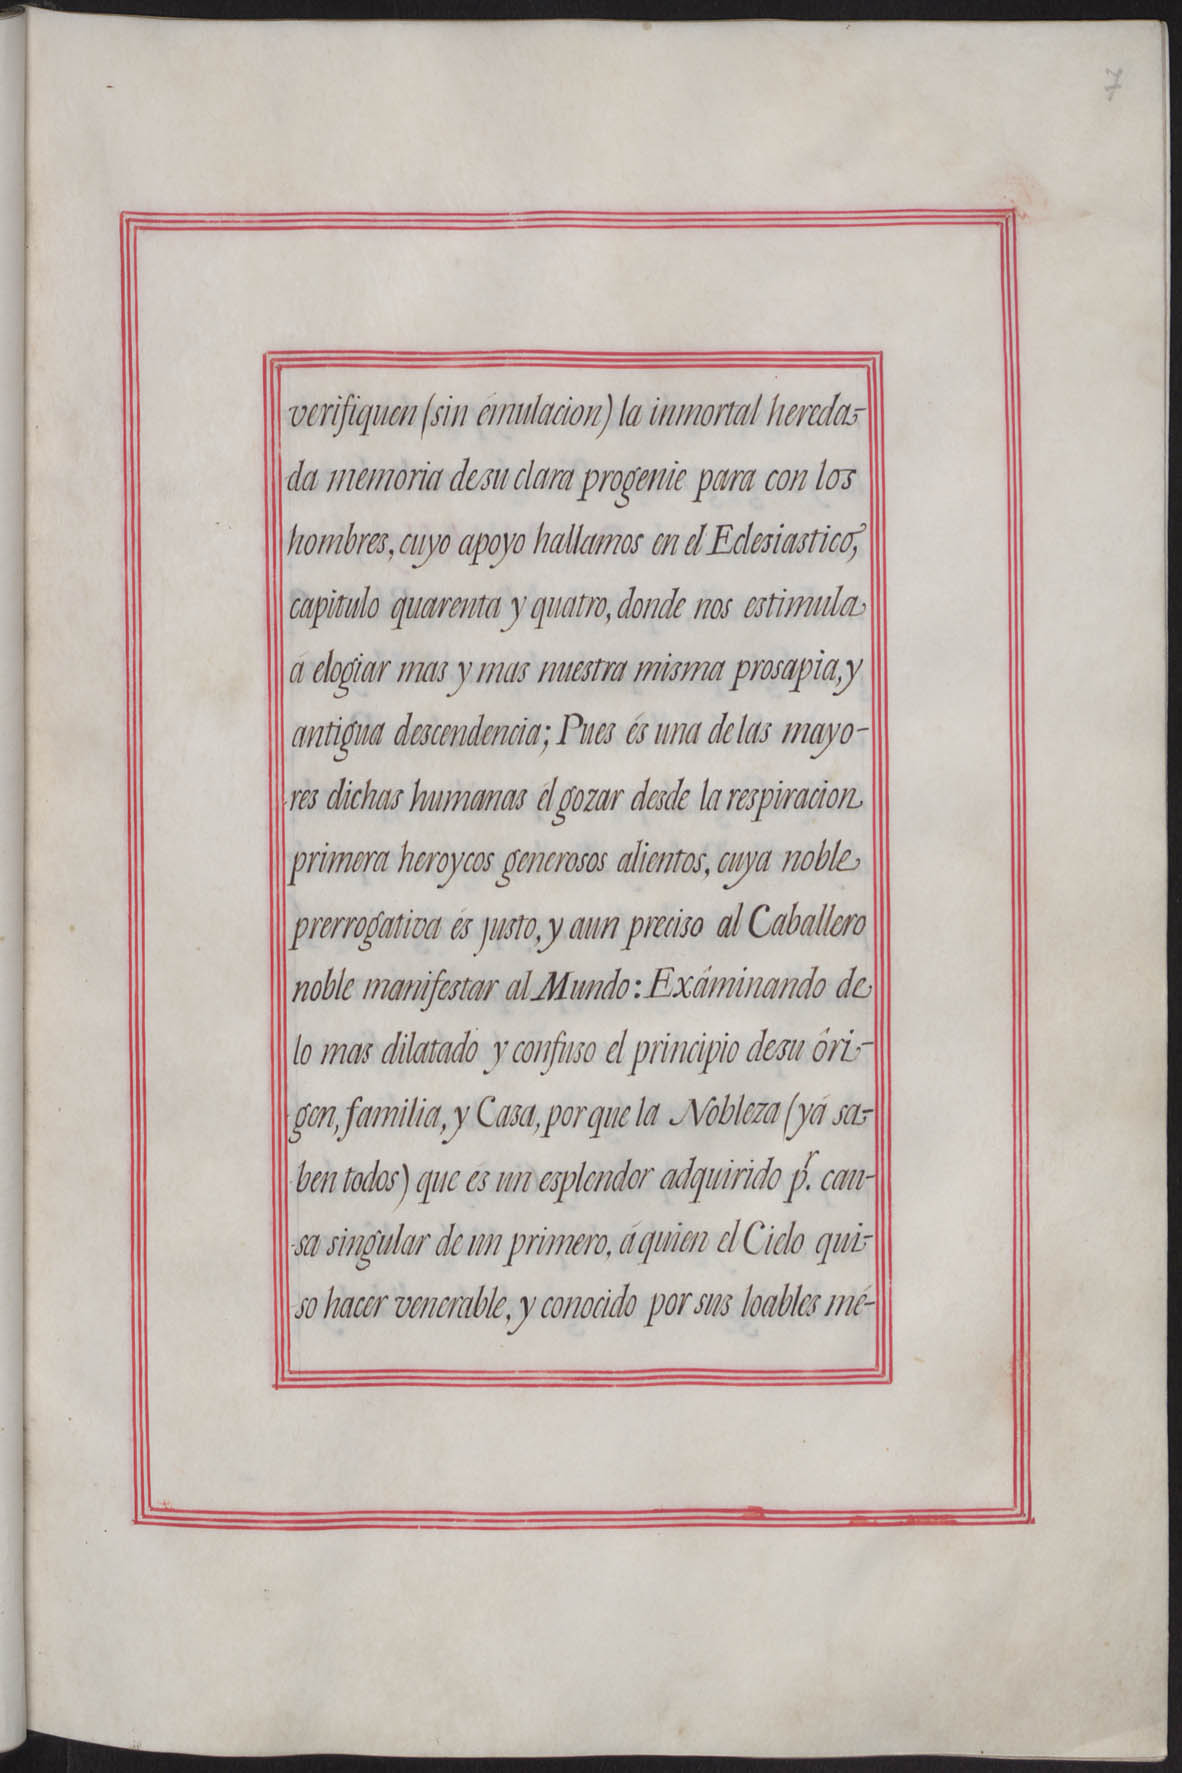 7
verifiquen (sin émulacion) la inmortal hereda-
da memoria de su clara progenie para con los
hombres, cuyo apoyo hallamos en el Eclesiastico,
capitulo quarenta y quatro, donde nos estimula
á elogiar mas y mas nuestra misma prosapia, y
antigua descendencia; Pues és una de las mayo-
res dichas humanas él gozar desde la respiracion
primera heroycos generosos alientos, cuya noble
prerrogativa és justo, y aun preciso al Caballero
noble manifestar al Mundo: Exâminando de
lo mas dilatado y confuso el principio de su ôri-
gen, familia, y Casa, por que la Nobleza (yá sa-
ben todos) que és un esplendor adquirido pr. cau-
sa singular de un primero, á quien el Cielo qui-
so hacer venerable, y conocido por sus loables mé-